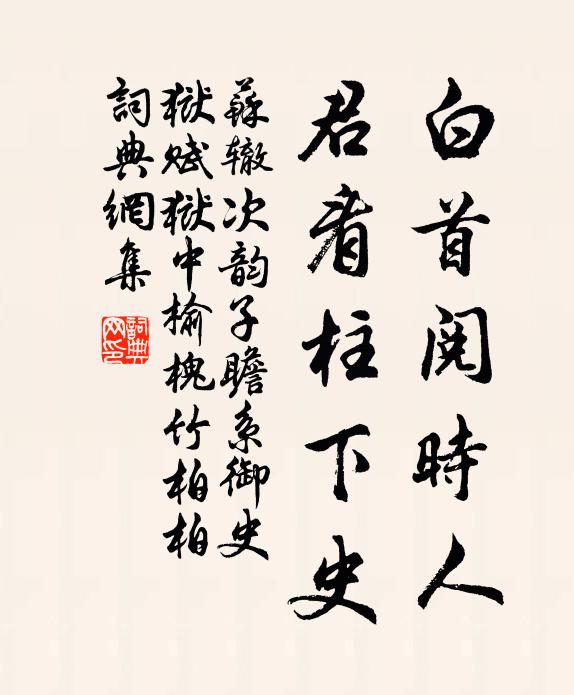 白首閱時人
君看柱下史
蘇轍次韵子瞻系御史
獄賦獄中榆槐竹柏柏
詞典網集
詞典網印